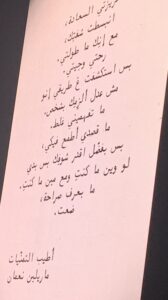 عزيزتي السعادة،
انبسطت شفتك،
مع إنك ما طولتي.
رحتي وجيتي.
بس استكشعت ع طريقي إنو
مش عدل اربطك بشخص.
ما تفهميني غلط.
ما قصدي أطمع فيكي،
بس بفضل اقدر شوفك بس بدي
لو وين ما كنت ومع مين ما كنت.
ما بعرف صراحة،
ضعت.
أطيب التمنيات
ماريلين نعمان